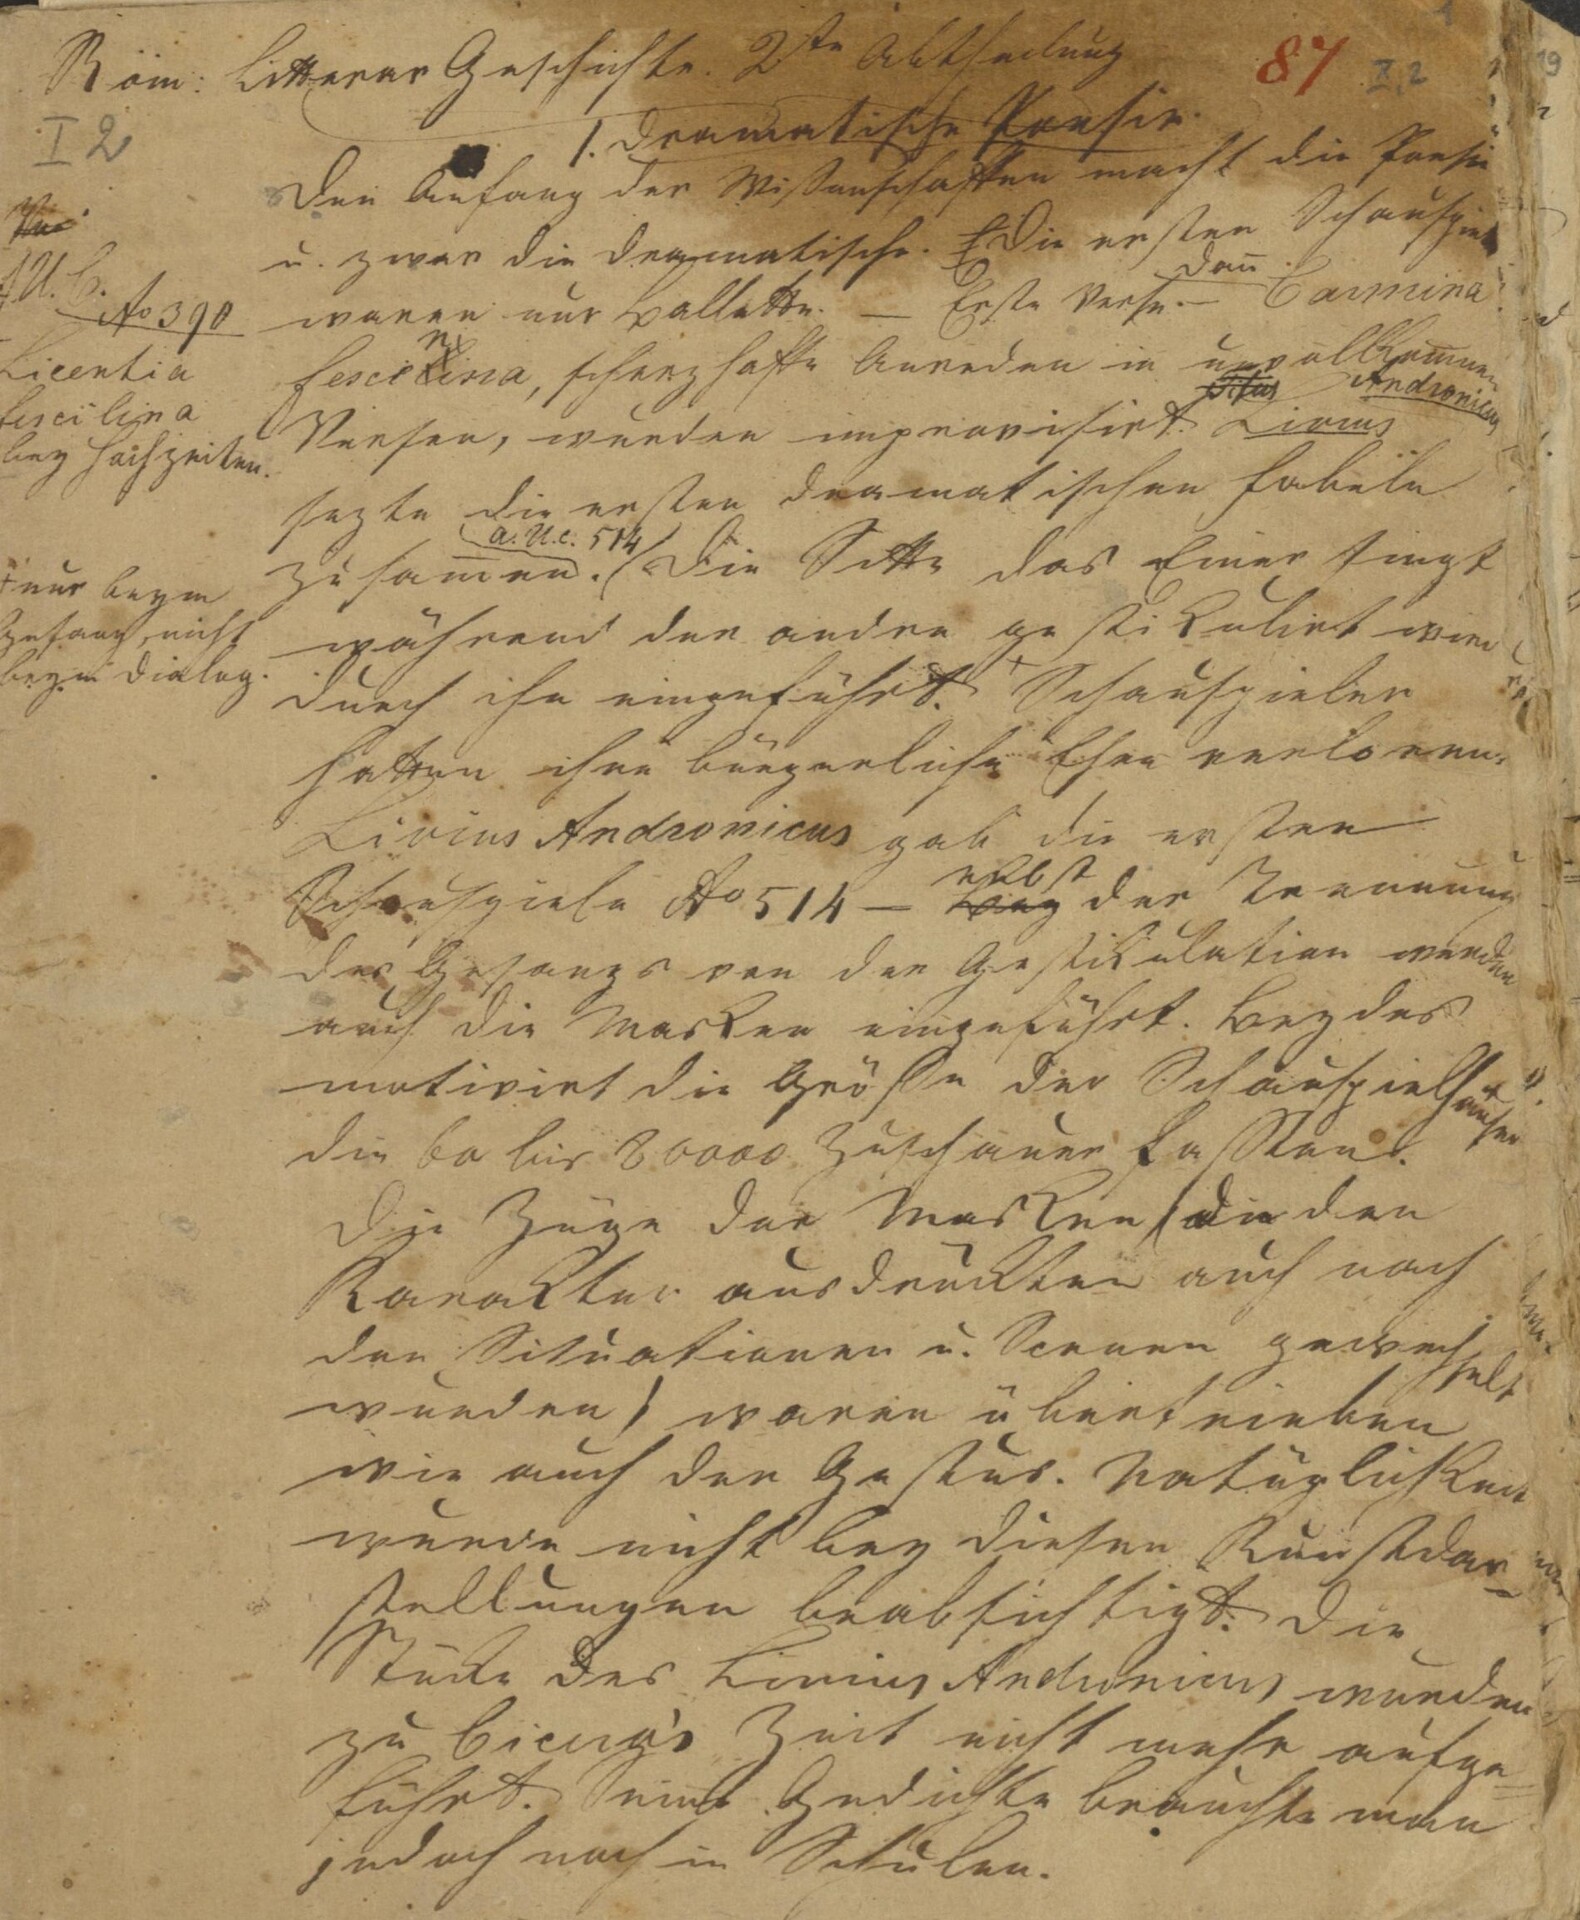 Röm: Litterar Geschichte. 2te Abtheilung
87
I,2
I 2
1. Dramatische Poesie.
Den Anfang der Wissenschaften macht die Poesie
u. zwar die dramatische. Die ersten Schauspiele
waren nur Ballette. — Erste Verse. — dann Carmina
A. U. C.
Ao 390
Licentia
fescelina
bey Hochzeiten.
fescenina, scherzhafte Anreden in unvollkomnen
Versen, wurden improvisirt. Livius Andronicus
sezte die ersten dramatischen Fabeln
a. U. c. 514
zusamen. (Die Sitte das Einer singt
während der andre gestikulirt wird
durch ihn eingeführt. + Schauspieler
+ nur beym
Gesang, nicht
beym Dialog.
hatten ihre bürgerliche Ehre verloren.
Livius Andronicus gab die ersten
Schauspiele Ao 514 — nebst der Trennung
des Gesangs von der Gestikulation wurden
auch die Masken eingeführt. Beydes
motivirt die Größe der Schauspielhäuser
die 60 bis 80000 Zuschauer faßten.
Die Züge der Masken (die den
Karakter ausdrückten auch nach
den Situationen u. Scenen gewechselt
wurden) waren übertrieben
wie auch der Gestus. Natürlichkeit
wurde nicht bey diesen Kunstdar=
stellungen beabsichtigt. Die
Stücke des Livius Andronicus wurden
zu Cicero's Zeit nicht mehr aufge=
führt. Seine Gedichte brauchte man
jedoch noch in Schulen.